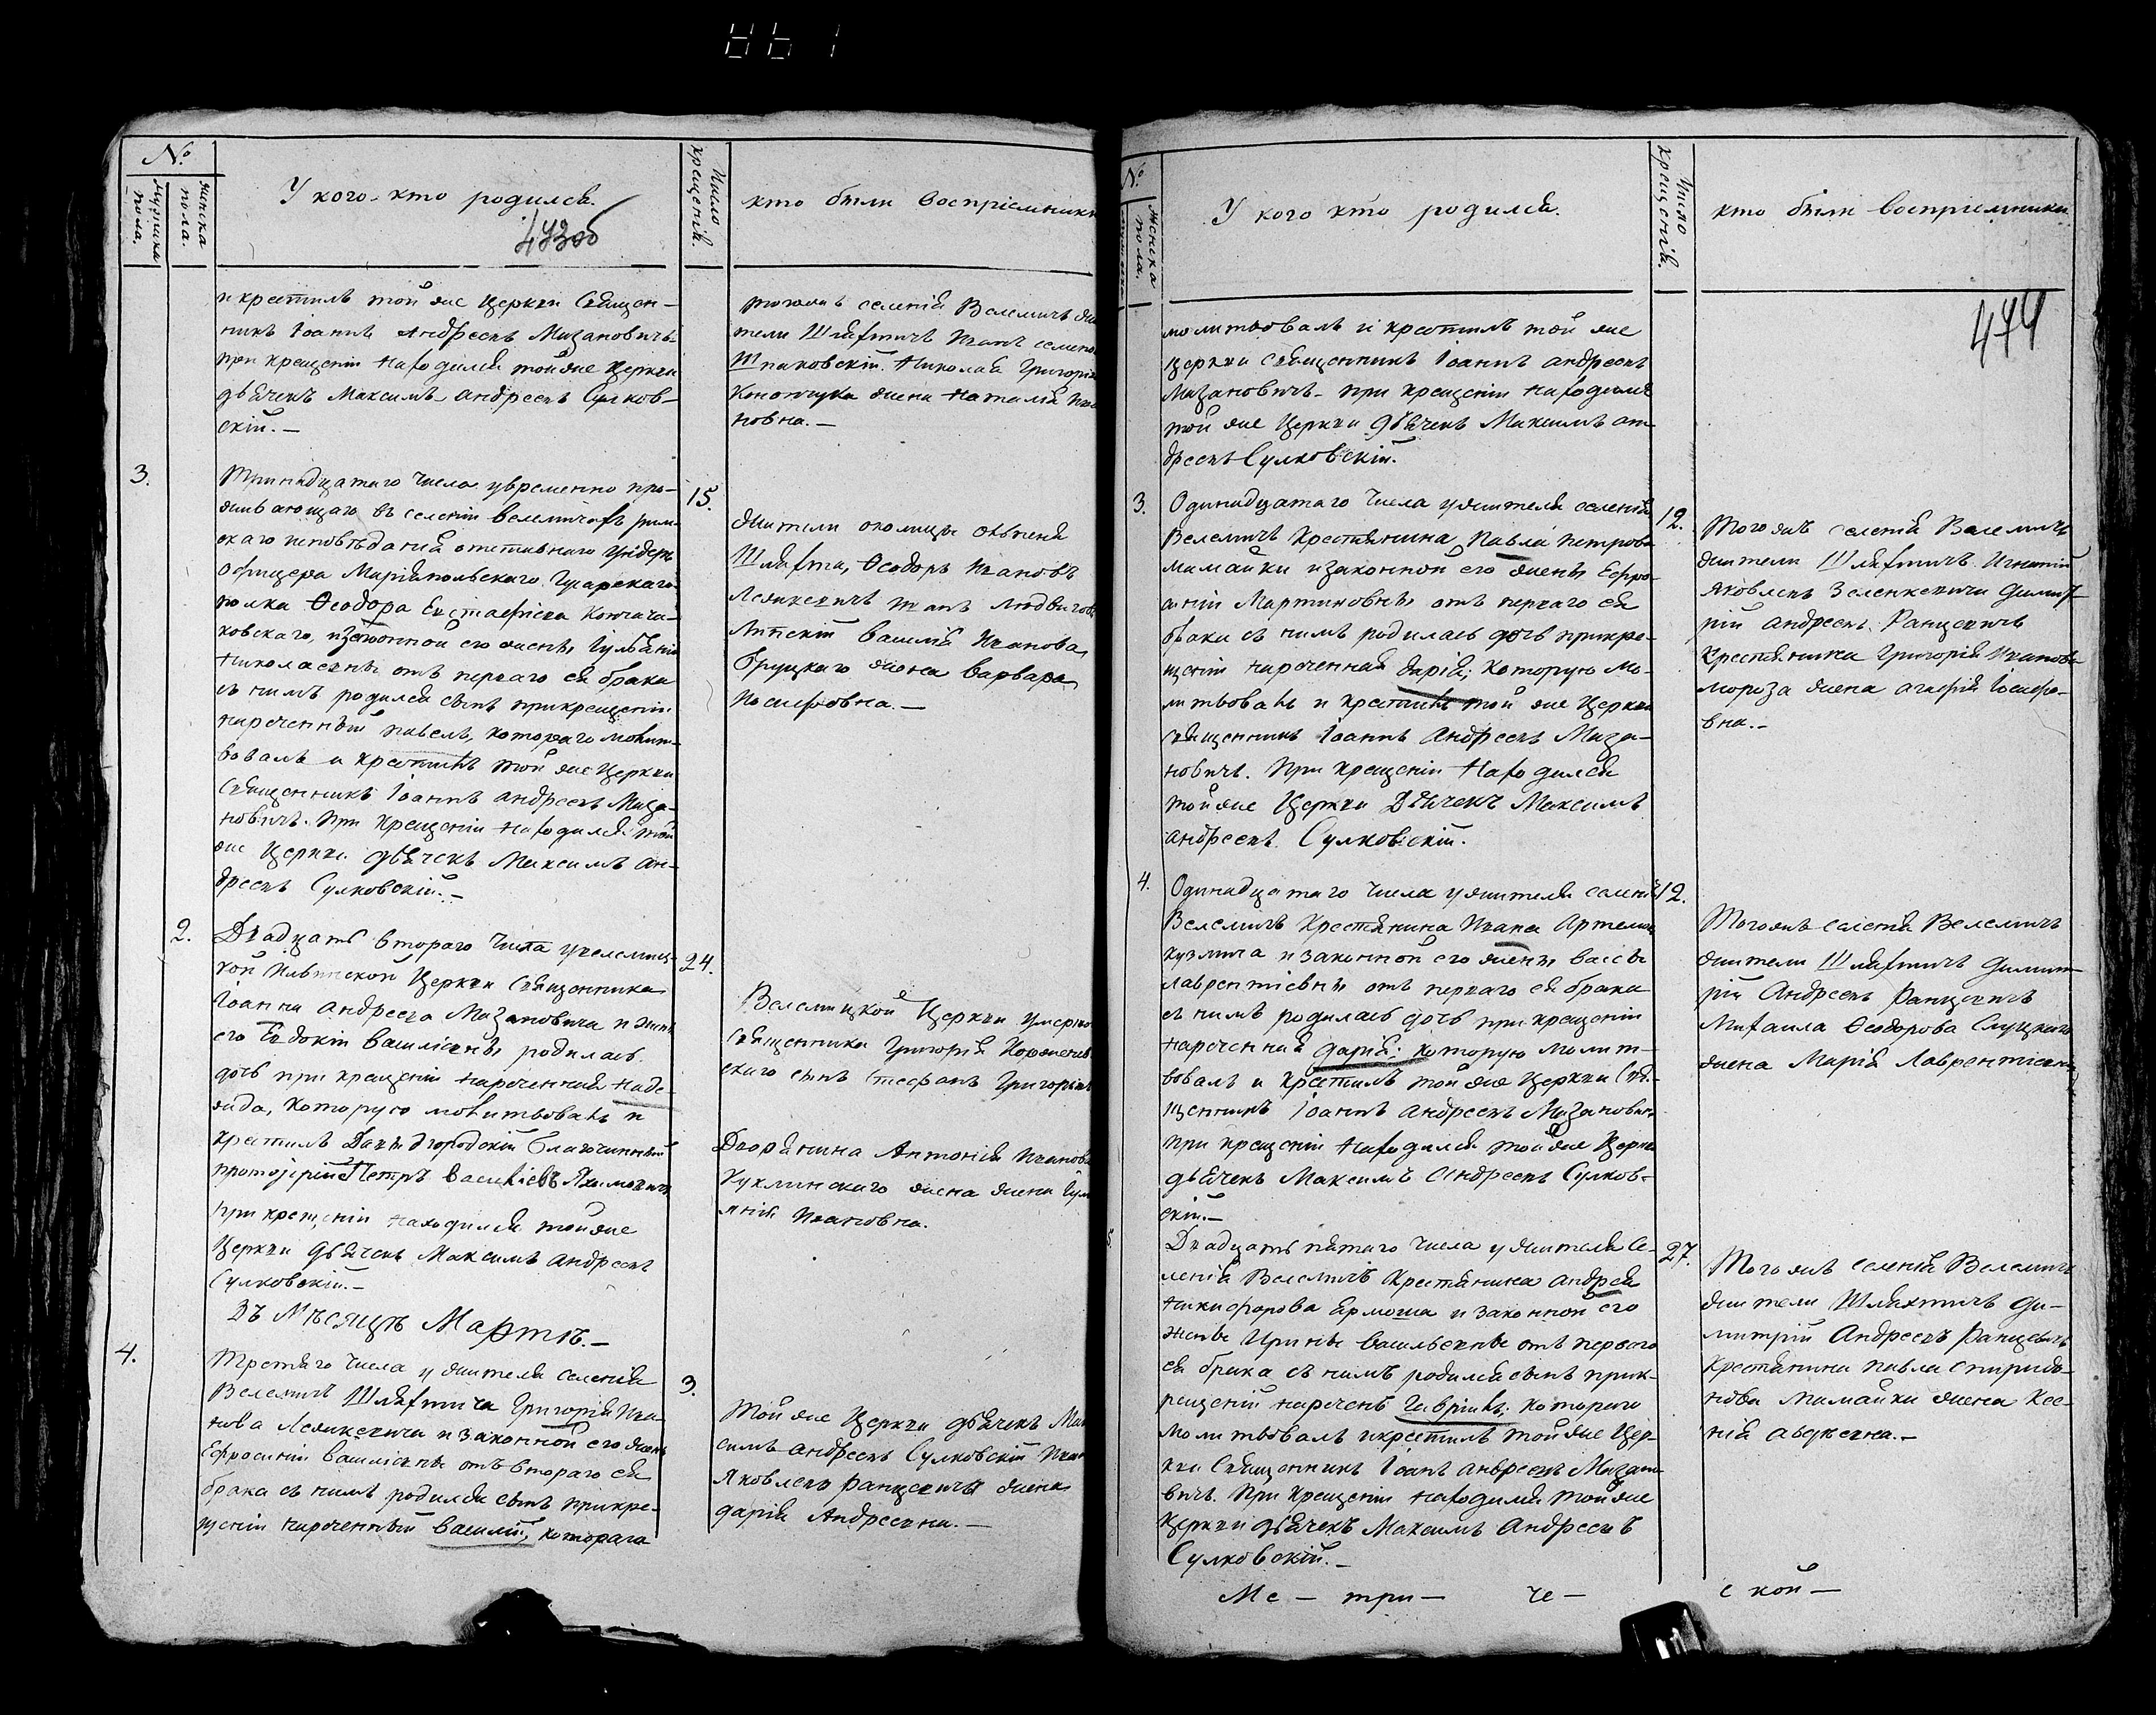 №.
мужеска пола.
женска пола.
У кого кто родился.
473об
Число крещенія.
кто были воспріемники
и крестилъ той же Церкви Священ-
никъ Іоаннъ Андреевъ Мизановичъ
при крещеніи находился тойже Церкви
дьячекъ Максимъ Андреевъ Сулков-
скій.—
тогожъ селенія Велемичъ жи
тели Шляхтичъ Иванъ Семенов
Шпаковскій. Николая Григорія
Конончука жена Наталія Ива
новна.—
3.
Тринадцатаго числа у временно про-
живающаго въ селеніи Велемичахъ рим-
скаго исповѣданія отставнаго Ундеръ
Офицера Маріямпольскаго Гусарскаго
полка Ѳеодора Евстафіева
ковскаго, и законной его жены Іуліаніи
Николаевны отъ перваго ея брака
съ нимъ родился сынъ при крещеніи
нареченный Павелъ, котораго молит-
вовалъ и крестилъ той же Церкви
Священникъ Іоаннъ Андреевъ Миза-
новичъ. При крещеніи находился той
же Церкви дьячекъ Максимъ Ан-
дреевъ Сулковскій.—
15.
жители околицы
Шляхта, Ѳеодоръ Ивановъ
Лемикевичъ Иванъ Людвиговъ
Липскій Василія Иванова
Бруцкаго жена Варвара
Иосифовна.—
2.
Двадцать втораго числа у Велемиц-
кой Ильинской Церкви Священника
Іоанна Андреева Мизановича и жены
его Евдокіи Василіевны родилась
дочь при крещеніи нареченная Наде-
жда, которую молитвовалъ и
крестилъ Давыдгородскій Благочинный
протоіерій Петръ Василіевъ Яхимовичъ
при крещеніи находился тойже
Церкви дьячекъ Максимъ Андреевъ
Сулковскій.—
24.
Велемицкой Церкви умершаго
Священника Григорія
скаго сынъ Стефанъ Григорьевъ
Дворянина Антонія Иванова
Куклинскаго жена жена Іул
янія Ивановна.
Въ Мѣсяцѣ Мартѣ.—
4.
Третяго числа у жителя селенія
Велемичъ Шляхтича Григорія Ива-
нова Лемикевича и законной его жены
Ефросиніи Василіевны отъ втораго ея
брака съ нимъ родился сынъ при кре-
щеніи нареченный Василій, котораго
3.
Той же Церкви дьячекъ Мак
симъ Андреевъ Сулковскій Иван
Яковлевъ Ранцевича жена
Дарія Андреевна.—
№.
женска пола.
У кого кто родился.
Число крещенія.
кто были воспріемники.
474
молитвовалъ и крестилъ той же
Церкви Священникъ Іоаннъ Андреевъ
Мизановичъ. При крещеніи находился
той же Церкви дьячекъ Максимъ Ан-
дреевъ Сулковскій.
3.
Одинадцатаго числа у жителя селенія
Велемичъ Крестянина Павла Петрова
Мамайки и законной его жены Ефро-
синіи Мартиновны отъ перваго ея
брака съ нимъ родилась дочь при кре-
щеніи нареченная Дарія; которую мо-
литвовалъ и крестилъ той же Церкви
Священникъ Іоаннъ Андреевъ Миза-
новичъ. При крещеніи находился
той же Церкви Дьячекъ Максимъ
Андреевъ Сулковскій.
12.
Того жъ селенія Велемичъ
жители Шляхтичъ Игнатій
Яковлевъ Зеленкевичъ Димит-
рій Андреевъ Ранцевичъ
Крестянина Григорія Иванова
Мороза жена Агафія Іосифо-
вна.—
4.
Одинадцатаго числа у жителя селенія
Велемичъ Крестянина Ивана Артемова
Кузмича и законной его жены Вассы
Лаврентіевны отъ перваго ея брака
съ нимъ родилась дочь при крещеніи
нареченная Дарія; которую молит-
вовалъ и крестилъ той же Церкви Свя-
щенникъ Іоаннъ Андреевъ Мизанович
при крещеніи находился той же Церкви
дьячекъ Максимъ Андреевъ Сулков-
скій.—
12.
Тогожъ селенія Велемичъ
жители Шляхтичъ Димит-
рій Андреевъ Ранцевичъ
Михаила Ѳеодорова Слуцкаго
жена Марія Лаврентіевна
5.
Двадцать пятаго числа у жителя се-
ленія Велемичъ Крестянина Андрея
Никифорова Ярмоша и законной его
жены Ирины Васильевны отъ перваго
ея брака съ нимъ родился сынъ при к-
рещеніи нареченъ Гавріилъ; котораго
молитвовалъ и крестилъ той же Цер-
кви Священникъ Іоанъ Андреевъ Мизано
вичъ. При крещеніи находился той же
Церкви дьячекъ Максимъ Андреевъ
Сулковскій.—
27.
Того жъ селенія Велемичъ
жители Шляхтичъ Ди-
митрій Андреевъ Ранцевичъ
Крестянина Павла Спиридо-
нова Мамайки жена Ксе-
нія Авдѣевна.—
Ме — три — че — ской —